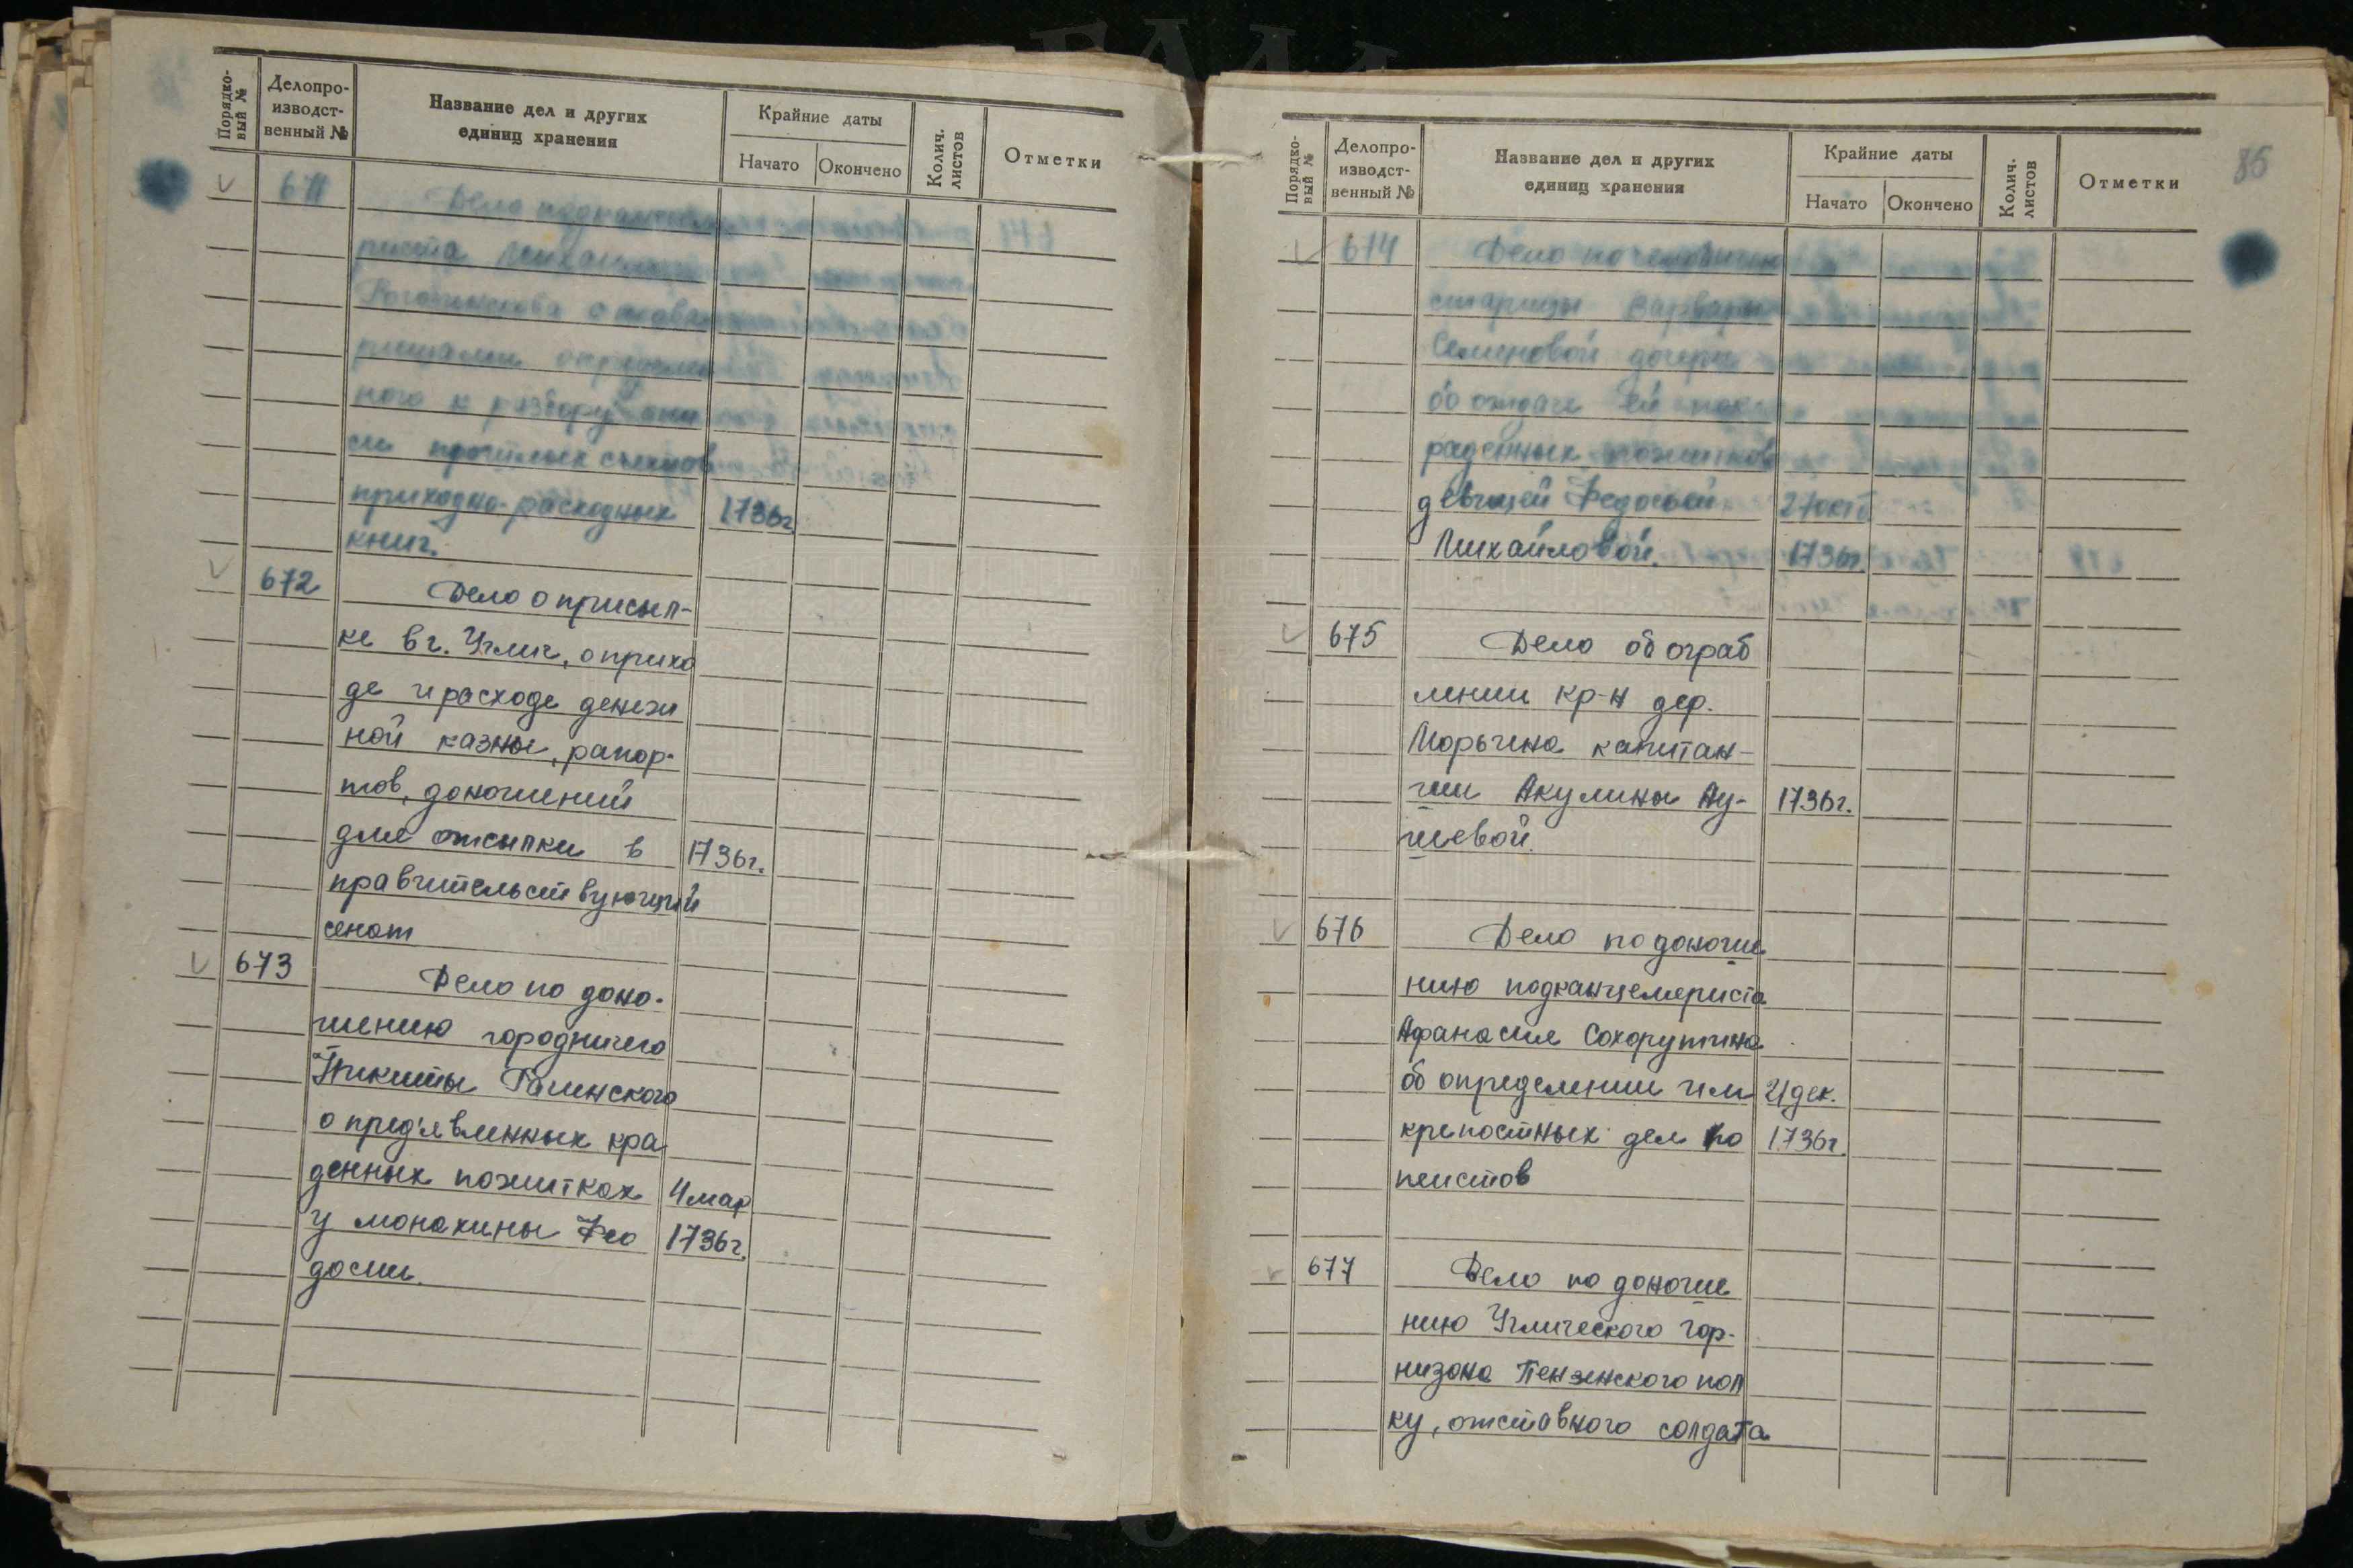 Порядко-
вый №
Делопро-
изводст-
венный №
Название дел и других
единиц хранения
Крайние даты
Начато
Окончено
Колич.
листов
Отметки
671
Дело подканцеля-
риста Михаила
ного к разбору
си прошлых
приходно-расходных 1736г.
книг.
672
Дело о присыл-
ке в г. Углич, о прихо
де и расходе денеж
ной казны, рапор-
тов, доношений
для отсылки в 1736г.
правительствующий
сенат
673
Дело по доно-
шению городничего
Никиты Рагинского
о пред'явленных кра
денных пожитках 4 мар
у монахины Фео 1736г.
досии.
85
Порядко-
вый №
Делопро-
изводст-
венный №
Название дел и других
единиц хранения
Крайние даты
Начато
Окончено
Колич.
листов
Отметки
674
Дело по челобитью
старицы Варвары
Семеновой дочери
об отдаче ей пок-
раденных пожитков
девицей Федосьей 27 окт
Михайловой. 1736г.
675
Дело об ограб
лении кр-н дер.
Морьина капитан-
ши Акулины Ау- 1736г.
шевой.
676
Дело по доноше
нию подканцеляриста
Афанасия Сохорутина
об определении им 21 дек.
крепостных дел ко 1736г.
пеистов
677
Дело по доноше
нию Углического гар-
низона Пензенского пол
ку, отставного солдата